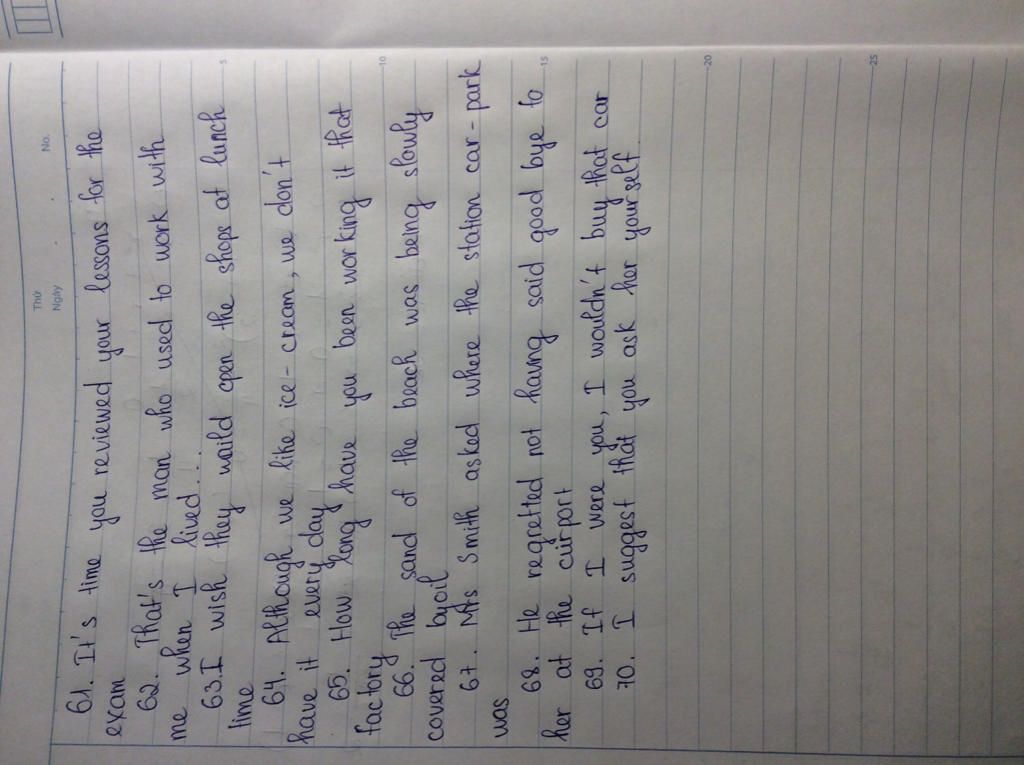 Thứ
Ngày
No.
61. It's time you reviewed your lessons for the
exam
62. That's the man who used to work with
me when I lived....
63. I wish they waild open the shops at lunch
time
64. Although we like ice-cream, we don't
have it every day
65. How long have you been working it that
factory
66. The sand of the beach was being slowly
covered by oil
67. Mrs Smith asked where the station car-park
was
68. He regretted not having said good bye to
her at the airport
69. If I were you, I wouldn't buy that car
70. I suggest that you ask her yourself
5
10
15
20
25